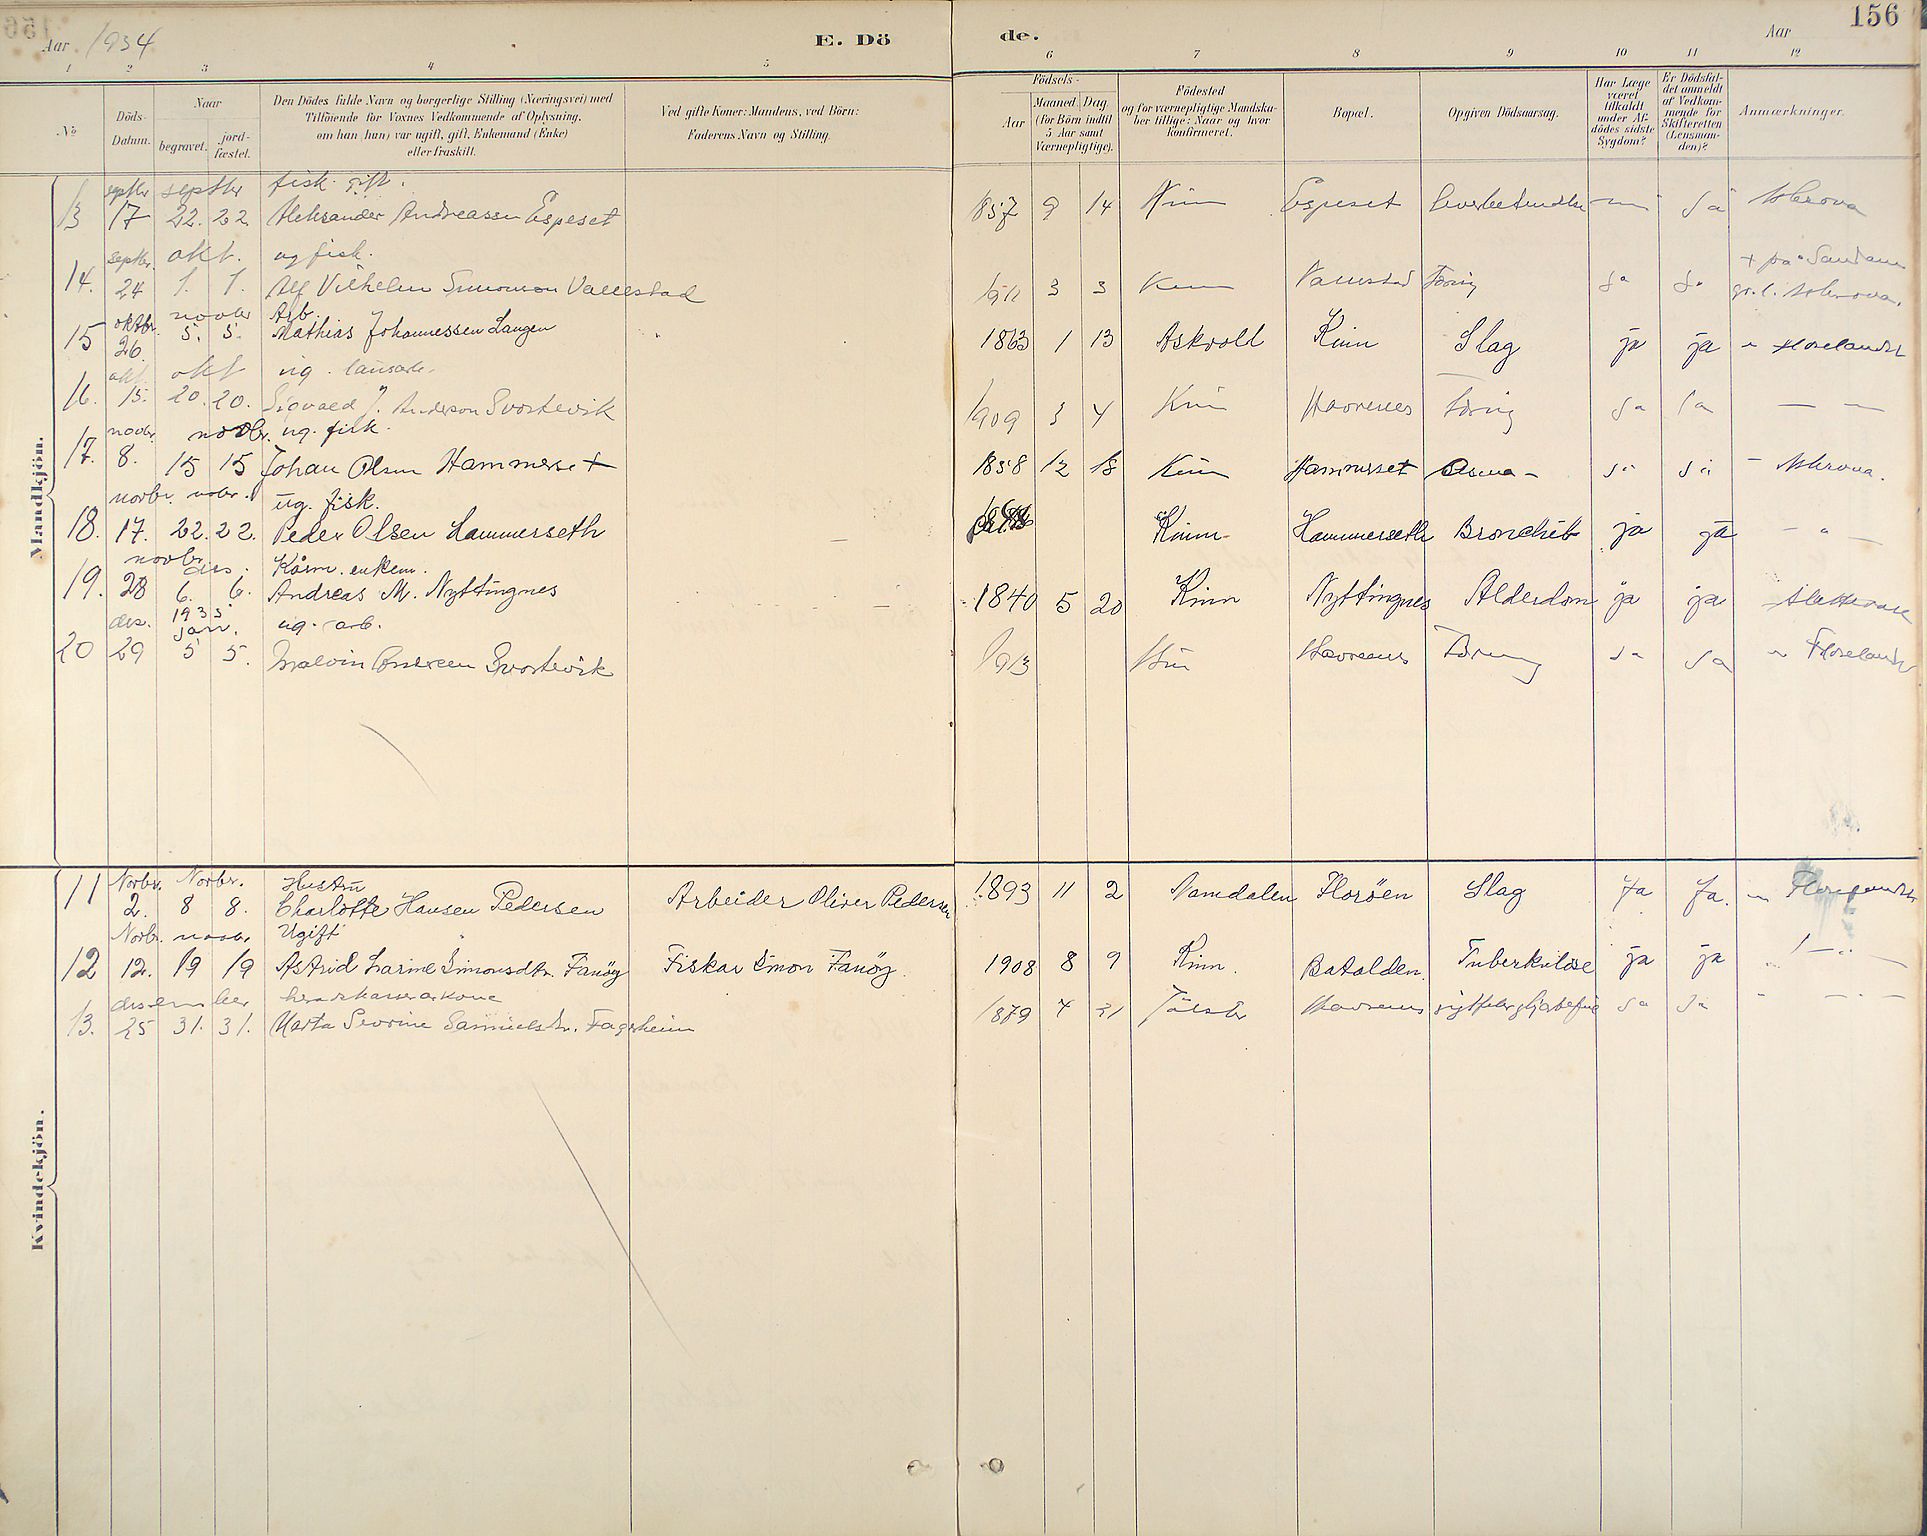 156
Aar 1934
E. Dö
de.
Aar
1 2 3 4 5 6 7 8 9 10 11 12
No
Döds-
Datum.
Naar
begravet.
jord-
fæstet.
Den Dödes fulde Navn og borgerlige Stilling (Næringsvei) med
Tilföiende for Voxnes Vedkommende af Oplysning,
om han (hun) var ugift, gift, Enkemand (Enke)
eller fraskilt.
Ved gifte Koner: Mandens, ved Börn:
Faderens Navn og Stilling.
Födsels-
Aar
Maaned. Dag.
(for Börn indtil
5 Aar samt
Værnepligtige).
Födested
og for værnepligtige Mandska-
ber tillige: Naar og hvor
konfirmeret.
Bopæl.
Opgiven Dödsaarsag.
Har Læge
været
tilkaldt
under Af-
dödes sidste
Sygdom?
Er Dödsfal-
det anmeldt
af Vedkom-
mende for
Skifteretten
(Lensman-
den)?
Anmærkninger.
Mandkjön.
septbr septbr fisk. gift.
13 17 22. 22 Aleksander Andreassen Espeset 1857 9 14 Kinn Espeset Ja
septbr. okt. ug fisk.
+ på Sandane
14. 24 1. 1. Alf Vilhelm Simonson Vallestad 1911 3 3 Kinn Vallestad Tæring Ja Ja
oktbr. novbr Arb.
15 26. 5. 5. Mathias Johannessen Langen 1863 1 13 Askvoll Kinn Slag ja ja " Florelandet
okt. okt ug. lausarb.
16. 15. 20. 20. Sigvald J. Anderson Svortevik 1909 3 4 Kinn Havrenes Tæring Ja Ja — —
novbr. novbr. ug. fisk.
17. 8. 15 15 Johan Olsen Hammerset 1858 12 18 Kinn Hammerset Asma - Ja Ja
novbr. novbr. ug. fisk.
18. 17. 22. 22. Peder Olsen Hammerseth Kinn Hammerseth Bronchit ja ja — " —
novbr. des. Kårm. enkem.
19. 28 6. 6. Andreas M. Nyttingnes 1840 5 20 Kinn Nyttingnes Alderdom ja ja
des. 1935 jan. ug. arb.
20 29 5 5. Svortevik 1913 Kinn Havrenes Tæring Ja Ja " Florelandet
Kvindekjön.
Novbr. Novbr. Hustru
11 2. 8 8. Charlotte Hansen Pedersen Arbeider Oliver Pedersen 1893 11 2 Namdalen Floröen Slag Ja Ja. Florelandet
Novbr. novbr Ugift
12 12. 19 19 Astrid Larine Simonsdtr. Fanöy Fiskar Simon Fanöy. 1908 8 9 Kinn. Batalden. Tuberkulöse ja ja
desember
13. 25 31. 31. Marta Severine Samuelsdtr. Fagerheim 1879 4 21 Jölster Havrenes Ja Ja